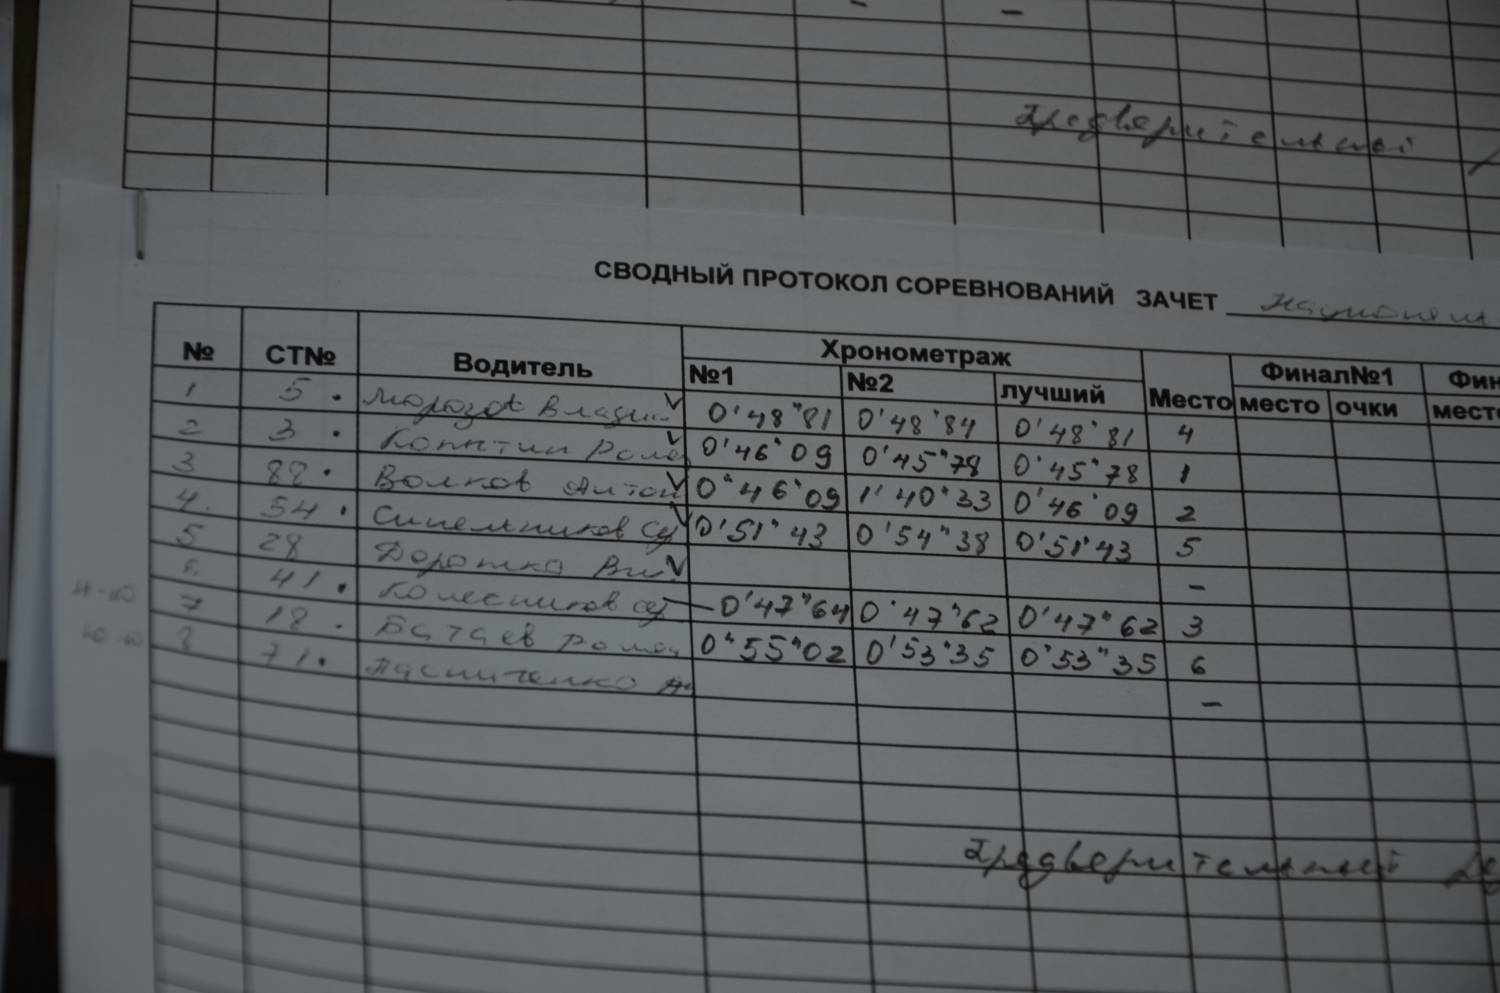 предверительный
СВОДНЫЙ ПРОТОКОЛ СОРЕВНОВАНИЙ ЗАЧЕТ
№ СТ№ Водитель Хронометраж Место Финал№1 Фин
№1 №2 лучший место очки место
1 5 Влади 0'48"81 0'48"84 0'48"81 4
2 3 Копытин Роман 0'46"09 0'45"78 0'45"78 1
3 88 Волков Антон 0"46"09 1'40"33 0'46"09 2
4. 54 Синельников Се 0'51"43 0'54"38 0'51'43 5
5 28 Дорошко -
6. 41 Колесников се 0'47"64 0'47"62 0'47"62 3
7 18 Батаев Роман 0"55"02 0'53"35 0'53"35 6
8 71 -
предверительный